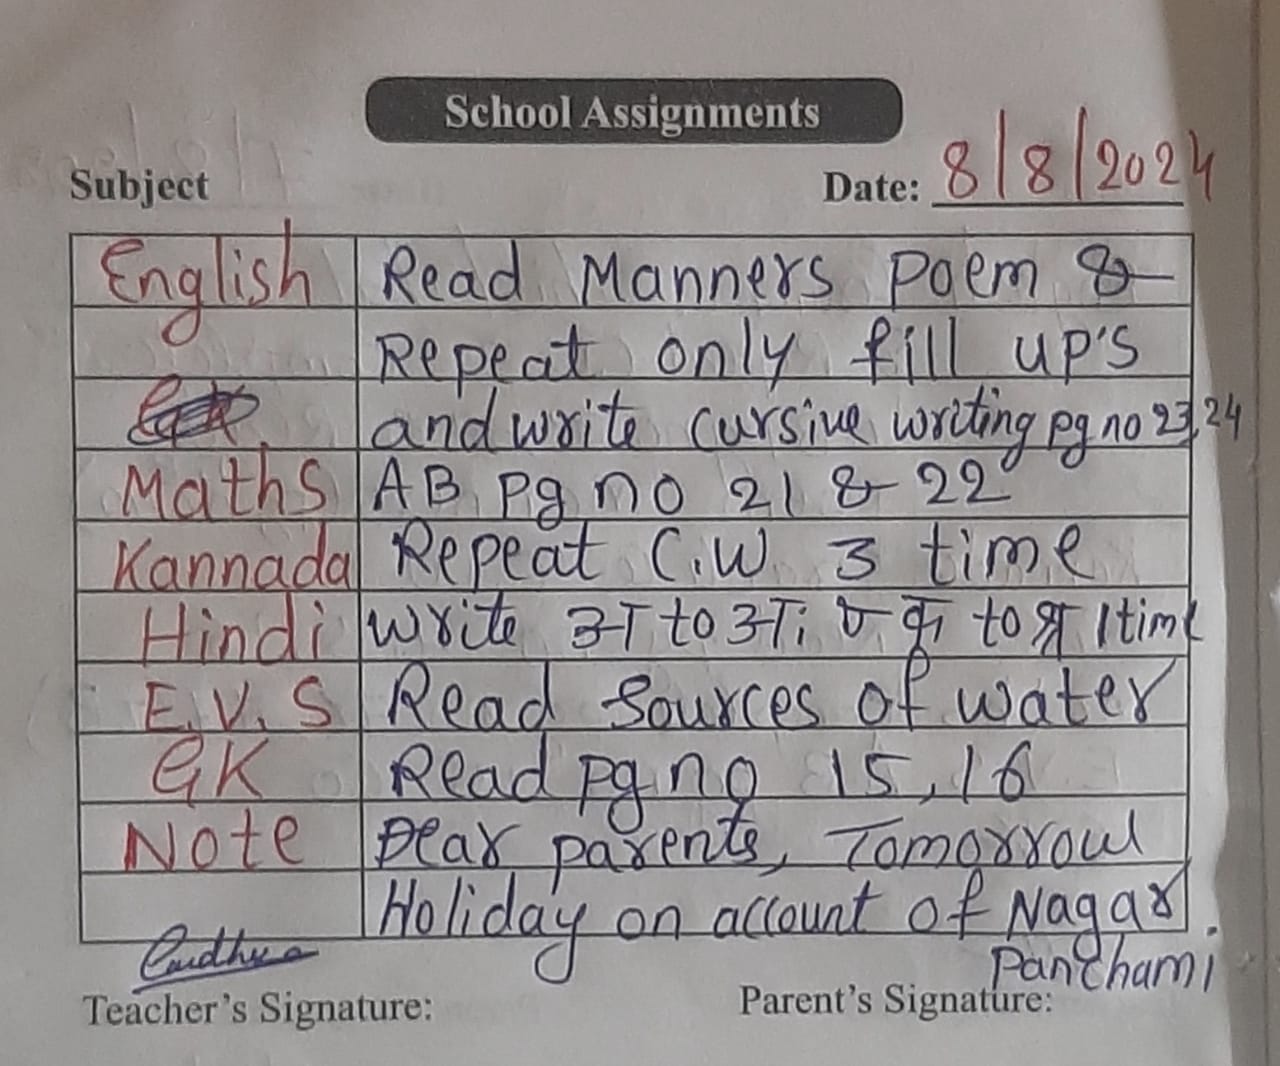 School Assignments
Subject Date: 8/8/2024
English Read Manners Poem &
Repeat only fill up's
and write cursive writing pg no 23,24
Maths AB pg no 21 & 22
Kannada Repeat C.W 3 time
Hindi write अ to अः & क to श्र 1 time
E.V.S Read Sources of water
GK Read pg no 15, 16
Note Dear parents, Tomorrow
Holiday on account of Nagar
Panchami.
Teacher's Signature: Parent's Signature: